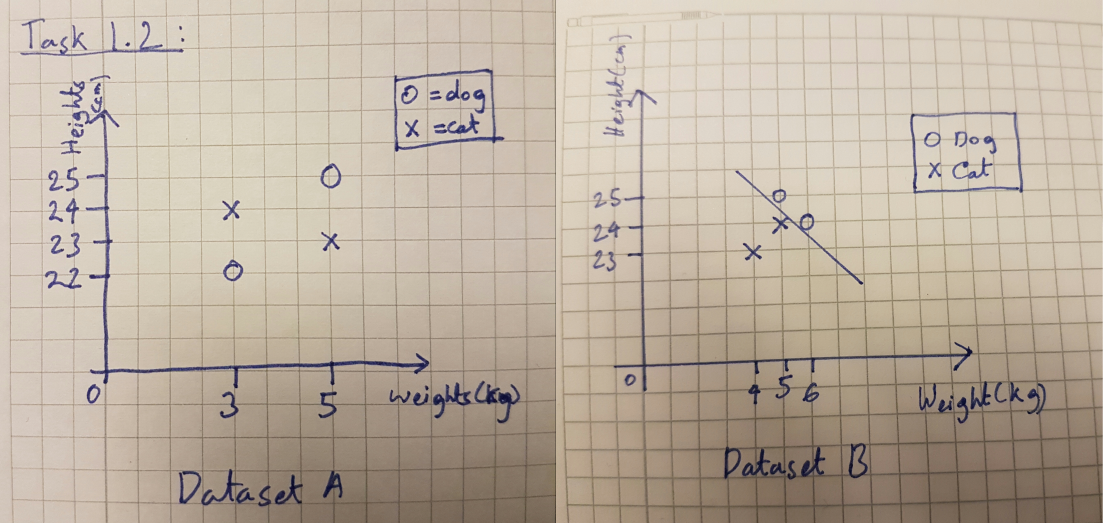 Task 1.2:
Heights (cm)
O = dog
X = cat
25
24
23
22
0
3
5
weights(Kg)
Dataset A
Height(cm)
O Dog
X Cat
25
24
23
0
4
5
6
Weight(kg)
Dataset B